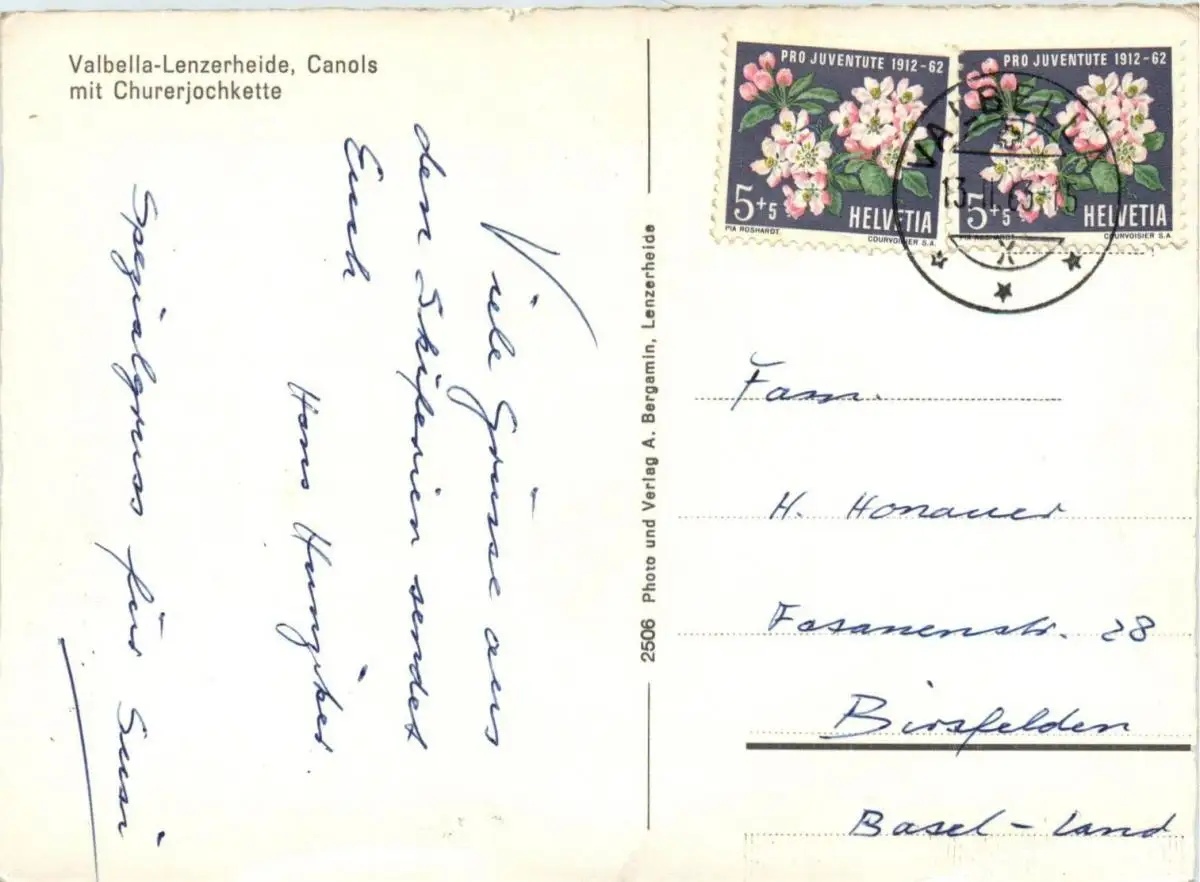 Valbella-Lenzerheide, Canols
mit Churerjochkette
Viele Grüsse aus
den Skiferien sendet
Euch
Hans Hunziker
Spezialgruss für Susi
2506 Photo und Verlag A. Bergamin, Lenzerheide
PRO JUVENTUTE 1912-62
5+5
HELVETIA
PIA ROSHARDT.
COURVOISIER S.A.
PRO JUVENTUTE 1912-62
5+5
HELVETIA
PIA ROSHARDT.
COURVOISIER S.A.
VALBELLA
Fam.
H. Honauer
Fasanenstr. 28
Birsfelden
Basel-Land